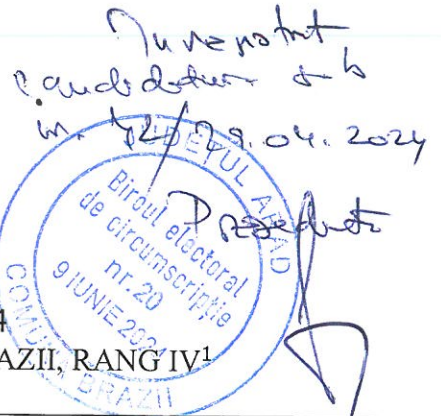 candidatura sub
nr. 42/29.04.2024
Președinte
JUDEȚUL ARAD
Biroul electoral
de circumscripție
nr.20
9 IUNIE 2024
COMUNA BRAZII
4
AZII, RANG IV¹